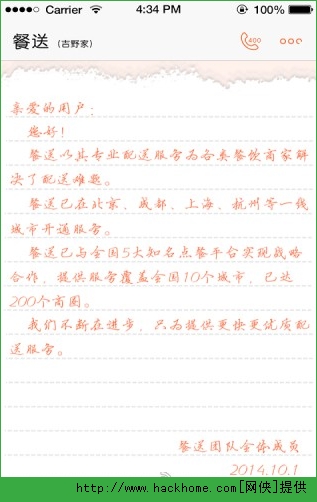 Carrier 4:34 PM 100%
餐送 (吉野家) 400
亲爱的用户：
您好！
餐送以其专业配送服务为各类餐饮商家解
决了配送难题。
餐送已在北京、成都、上海、杭州等一线
城市开通服务。
餐送已与全国5大知名点餐平台实现战略
合作，提供服务覆盖全国10个城市，已达
200个商圈。
我们不断在进步，只为提供更快更优质配
送服务。
餐送团队全体成员
2014.10.1
http://www.hackhome.com[网侠]提供